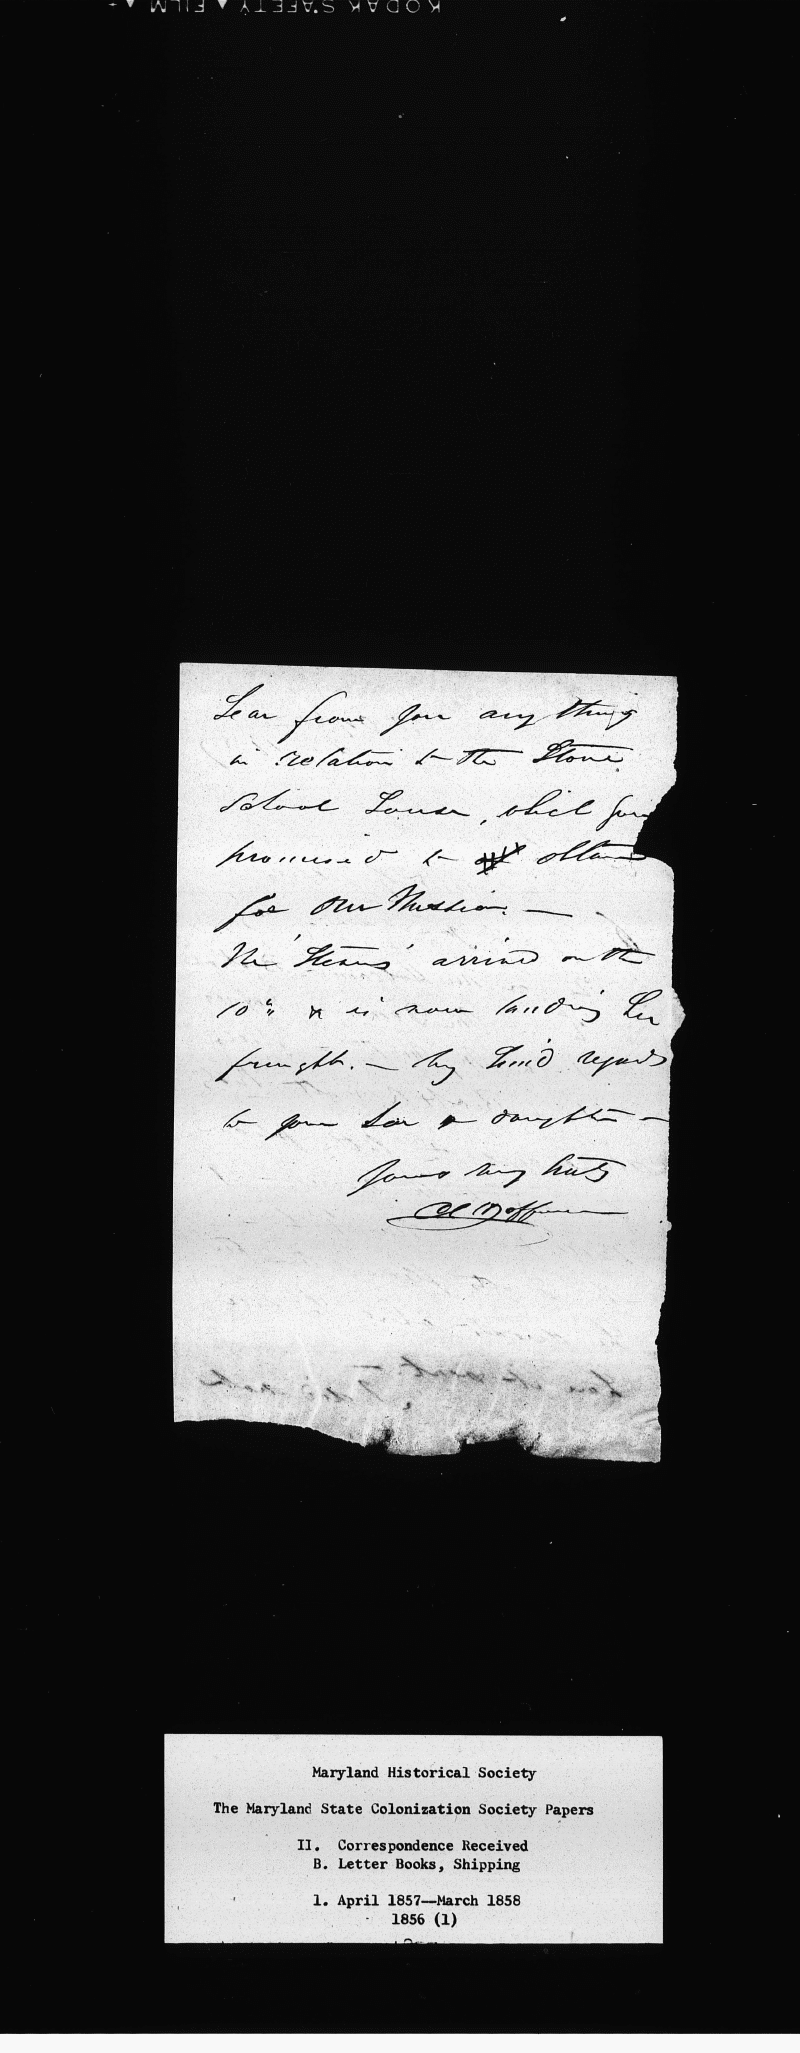 KODAK SAFETY FILM
hear from you any thing
in relation to the Stone
School House, which you
promised to obtain
for our Mission. —
The 'Stevens' arrived on the
10" & is now landing her
freight. — My kind regards
to your Son & daughter —
Yours very truly
C C Hoffman
Maryland Historical Society
The Maryland State Colonization Society Papers
II. Correspondence Received
B. Letter Books, Shipping
1. April 1857—March 1858
1856 (1)